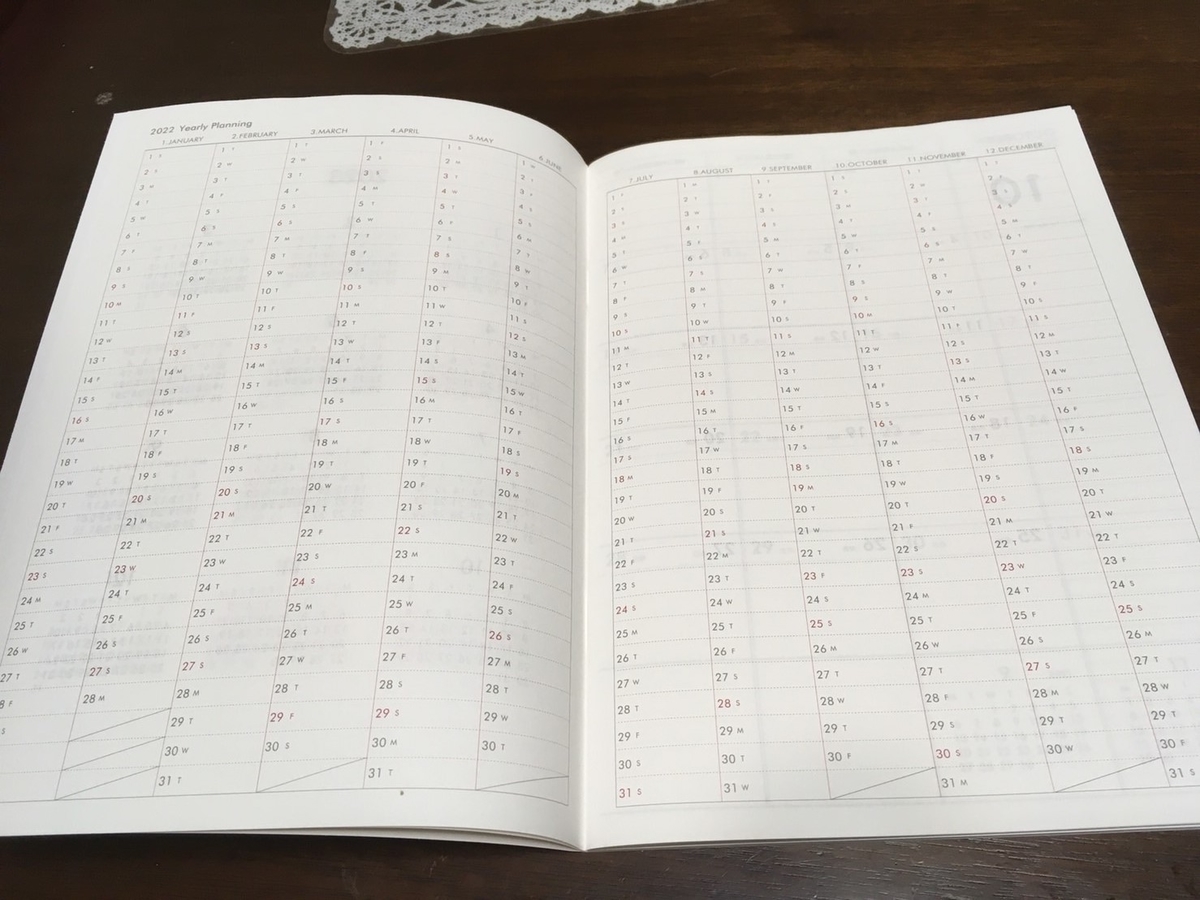 2022 Yearly Planning
1.JANUARY 2.FEBRUARY 3.MARCH 4.APRIL 5.MAY 6.JUNE
1 S 1 T 1 T 1 F 1 S 1 W
2 S 2 W 2 W 2 S 2 M 2 T
3 M 3 T 3 T 3 S 3 T 3 F
4 T 4 F 4 F 4 M 4 W 4 S
5 W 5 S 5 S 5 T 5 T 5 S
6 T 6 S 6 S 6 W 6 F 6 M
7 F 7 M 7 M 7 T 7 S 7 T
8 S 8 T 8 T 8 F 8 S 8 W
9 S 9 W 9 W 9 S 9 M 9 T
10 M 10 T 10 T 10 S 10 T 10 F
11 T 11 F 11 F 11 M 11 W 11 S
12 W 12 S 12 S 12 T 12 T 12 S
13 T 13 S 13 S 13 W 13 F 13 M
14 F 14 M 14 M 14 T 14 S 14 T
15 S 15 T 15 T 15 F 15 S 15 W
16 S 16 W 16 W 16 S 16 M 16 T
17 M 17 T 17 T 17 S 17 T 17 F
18 T 18 F 18 F 18 M 18 W 18 S
19 W 19 S 19 S 19 T 19 T 19 S
20 T 20 S 20 S 20 W 20 F 20 M
21 F 21 M 21 M 21 T 21 S 21 T
22 S 22 T 22 T 22 F 22 S 22 W
23 S 23 W 23 W 23 S 23 M 23 T
24 M 24 T 24 T 24 S 24 T 24 F
25 T 25 F 25 F 25 M 25 W 25 S
26 W 26 S 26 S 26 T 26 T 26 S
27 T 27 S 27 S 27 W 27 F 27 M
8 F 28 M 28 M 28 T 28 S 28 T
S 29 T 29 F 29 S 29 W
30 W 30 S 30 M 30 T
31 T 31 T
7.JULY 8.AUGUST 9.SEPTEMBER 10.OCTOBER 11.NOVEMBER 12.DECEMBER
1 F 1 M 1 T 1 S 1 T 1 T
2 S 2 T 2 F 2 S 2 W 2 F
3 S 3 W 3 S 3 M 3 T 3 S
4 M 4 T 4 S 4 T 4 F 4 S
5 T 5 F 5 M 5 W 5 S 5 M
6 W 6 S 6 T 6 T 6 S 6 T
7 T 7 S 7 W 7 F 7 M 7 W
8 F 8 M 8 T 8 S 8 T 8 T
9 S 9 T 9 F 9 S 9 W 9 F
10 S 10 W 10 S 10 M 10 T 10 S
11 M 11 T 11 S 11 T 11 F 11 S
12 T 12 F 12 M 12 W 12 S 12 M
13 W 13 S 13 T 13 T 13 S 13 T
14 T 14 S 14 W 14 F 14 M 14 W
15 F 15 M 15 T 15 S 15 T 15 T
16 S 16 T 16 F 16 S 16 W 16 F
17 S 17 W 17 S 17 M 17 T 17 S
18 M 18 T 18 S 18 T 18 F 18 S
19 T 19 F 19 M 19 W 19 S 19 M
20 W 20 S 20 T 20 T 20 S 20 T
21 T 21 S 21 W 21 F 21 M 21 W
22 F 22 M 22 T 22 S 22 T 22 T
23 S 23 T 23 F 23 S 23 W 23 F
24 S 24 W 24 S 24 M 24 T 24 S
25 M 25 T 25 S 25 T 25 F 25 S
26 T 26 F 26 M 26 W 26 S 26 M
27 W 27 S 27 T 27 T 27 S 27 T
28 T 28 S 28 W 28 F 28 M 28 W
29 F 29 M 29 T 29 S 29 T 29 T
30 S 30 T 30 F 30 S 30 W 30 F
31 S 31 W 31 M 31 S